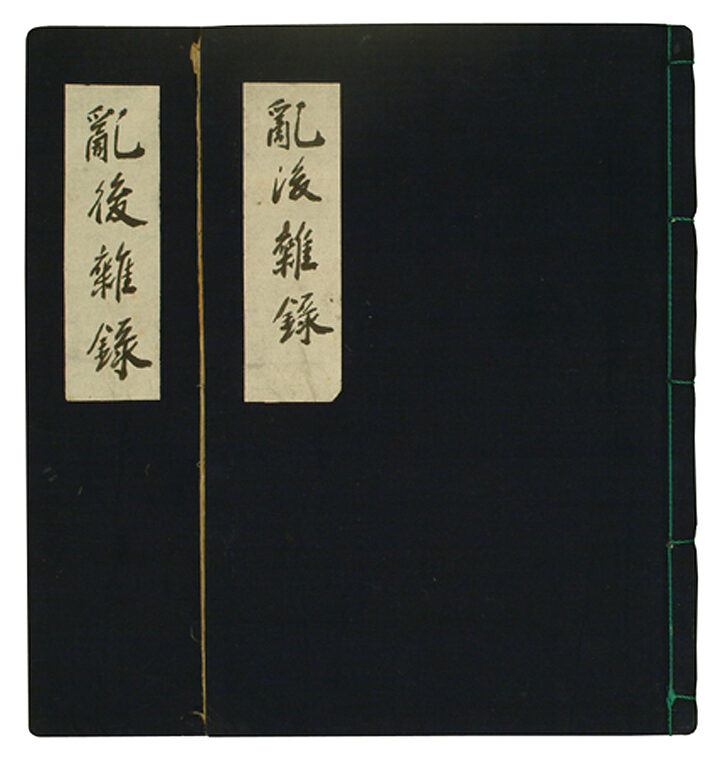 亂後雜錄
亂後雜錄